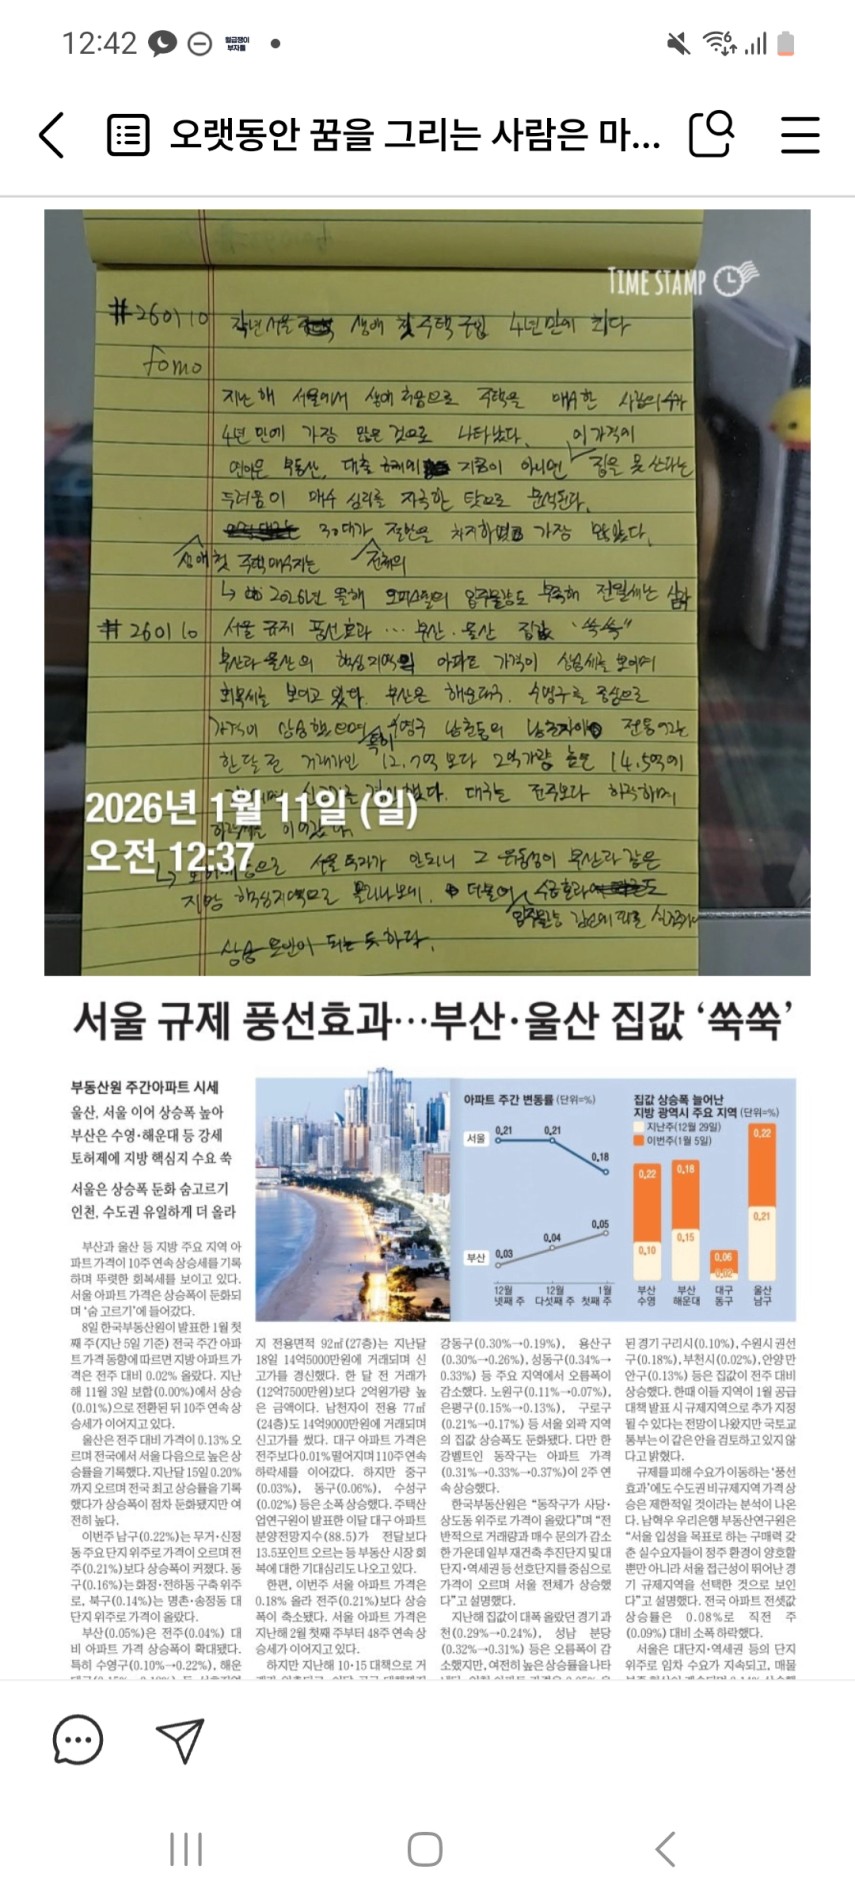 12:42
월급쟁이
부자들
오랫동안 꿈을 그리는 사람은 마...
TIME STAMP
#260110 작년 서울 생애 첫 주택 구입 4년만에 최다
fomo
지난해 서울에서 생애 처음으로 주택을 매수한 사람의 수가
4년 만에 가장 많은 것으로 나타났다. 이 가격에
연이은 부동산, 대출 규제에 지금이 아니면 집을 못 산다는
두려움이 매수 심리를 자극한 탓으로 분석된다.
30대가 절반을 차지하면서 가장 많았다.
생애 첫 주택매수자는 전체의
↳ 2026년 올해 오피스텔의 입주물량도 부족해 전월세난 심각
#260110 서울 규제 풍선효과... 부산·울산 집값 "쑥쑥"
부산과 울산의 핵심지역의 아파트 가격이 상승세를 보이며
회복세를 보이고 있다. 부산은 해운대구. 수영구를 중심으로
가격이 상승했으며 특히 수영구 남천동의 남천자이 전용
한달 전 거래가인 12.7억 보다 2억가량 높은 14.5억에
했다. 대구는 전주보다 하락하며
2026년 1월 11일 (일)
하락세를 이어갔다.
오전 12:37
↳ 으로 서울 투자가 안되니 그 유동성이 부산과 같은
지방 핵심지역으로 몰리나보네. 더불어
입주물량 감소에 따른 신축
상승 요인이 되는 듯하다.
서울 규제 풍선효과…부산·울산 집값 ‘쑥쑥’
부동산원 주간아파트 시세
울산, 서울 이어 상승폭 높아
부산은 수영·해운대 등 강세
토허제에 지방 핵심지 수요 쑥
서울은 상승폭 둔화 숨고르기
인천, 수도권 유일하게 더 올라
아파트 주간 변동률 (단위=%)
서울
0.21
0.21
0.18
부산
0.03
0.04
0.05
12월 넷째 주
12월 다섯째 주
1월 첫째 주
집값 상승폭 늘어난
지방 광역시 주요 지역 (단위=%)
지난주(12월 29일)
이번주(1월 5일)
0.22
0.10
부산 수영
0.18
0.15
부산 해운대
0.06
0.02
대구 동구
0.22
0.21
울산 남구
부산과 울산 등 지방 주요 지역 아
파트 가격이 10주 연속 상승세를 기록
하며 뚜렷한 회복세를 보이고 있다.
서울 아파트 가격은 상승폭이 둔화되
며 ‘숨 고르기’에 들어갔다.
8일 한국부동산원이 발표한 1월 첫
째 주(지난 5일 기준) 전국 주간 아파
트가격 동향에 따르면 지방 아파트 가
격은 전주 대비 0.02% 올랐다. 지난
해 11월 3일 보합(0.00%)에서 상승
(0.01%)으로 전환된 뒤 10주 연속 상
승세가 이어지고 있다.
울산은 전주 대비 가격이 0.13% 오
르며 전국에서 서울 다음으로 높은 상
승률을 기록했다. 지난달 15일 0.20%
까지 오르며 전국 최고 상승률을 기록
했다가 상승폭이 점차 둔화됐지만 여
전히 높다.
이번주 남구(0.22%)는 무거·신정
동 주요 단지 위주로 가격이 오르며 전
주(0.21%)보다 상승폭이 커졌다. 동
구(0.16%)는 화정·전하동 구축 위주
로, 북구(0.14%)는 명촌·송정동 대
단지 위주로 가격이 올랐다.
부산(0.05%)은 전주(0.04%) 대
비 아파트 가격 상승폭이 확대됐다.
특히 수영구(0.10%→0.22%), 해운
지 전용면적 92㎡(27층)는 지난달
18일 14억5000만원에 거래되며 신
고가를 경신했다. 한 달 전 거래가
(12억7500만원)보다 2억원가량 높
은 금액이다. 남천자이 전용 77㎡
(24층)도 14억9000만원에 거래되며
신고가를 썼다. 대구 아파트 가격은
전주보다 0.01% 떨어지며 110주 연속
하락세를 이어갔다. 하지만 중구
(0.03%), 동구(0.06%), 수성구
(0.02%) 등은 소폭 상승했다. 주택산
업연구원이 발표한 이달 대구 아파트
분양전망지수(88.5)가 전달보다
13.5포인트 오르는 등 부동산 시장 회
복에 대한 기대심리도 나오고 있다.
한편, 이번주 서울 아파트 가격은
0.18% 올라 전주(0.21%)보다 상승
폭이 축소됐다. 서울 아파트 가격은
지난해 2월 첫째 주부터 48주 연속 상
승세가 이어지고 있다.
하지만 지난해 10·15 대책으로 거
강동구(0.30%→0.19%), 용산구
(0.30%→0.26%), 성동구(0.34%→
0.33%) 등 주요 지역에서 오름폭이
감소했다. 노원구(0.11%→0.07%),
은평구(0.15%→0.13%), 구로구
(0.21%→0.17%) 등 서울 외곽 지역
의 집값 상승폭도 둔화됐다. 다만 한
강벨트인 동작구는 아파트 가격
(0.31%→0.33%→0.37%)이 2주 연
속 상승했다.
한국부동산원은 “동작구가 사당·
상도동 위주로 가격이 올랐다”며 “전
반적으로 거래량과 매수 문의가 감소
한 가운데 일부 재건축 추진단지 및 대
단지·역세권 등 선호단지를 중심으로
가격이 오르며 서울 전체가 상승했
다”고 설명했다.
지난해 집값이 대폭 올랐던 경기 과
천(0.29%→0.24%), 성남 분당
(0.32%→0.31%) 등은 오름폭이 감
소했지만, 여전히 높은 상승률을 나타
된 경기 구리시(0.10%), 수원시 권선
구(0.18%), 부천시(0.02%), 안양 만
안구(0.13%) 등은 집값이 전주 대비
상승했다. 한때 이들 지역이 1월 공급
대책 발표 시 규제지역으로 추가 지정
될 수 있다는 전망이 나왔지만 국토교
통부는 이 같은 안을 검토하고 있지 않
다고 밝혔다.
규제를 피해 수요가 이동하는 ‘풍선
효과’에도 수도권 비규제지역 가격 상
승은 제한적일 것이라는 분석이 나온
다. 남혁우 우리은행 부동산연구원은
“서울 입성을 목표로 하는 구매력 갖
춘 실수요자들이 정주 환경이 양호할
뿐만 아니라 서울 접근성이 뛰어난 경
기 규제지역을 선택한 것으로 보인
다”고 설명했다. 전국 아파트 전셋값
상승률은 0.08%로 직전 주
(0.09%) 대비 소폭 하락했다.
서울은 대단지·역세권 등의 단지
위주로 임차 수요가 지속되고, 매물